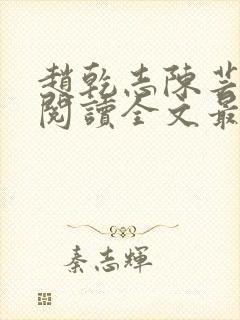 趙乾志陳芸
閱讀全文最
秦志輝